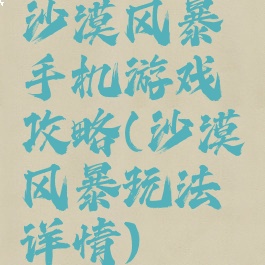 沙漠风暴
手机游戏
攻略(沙漠
风暴玩法
详情)